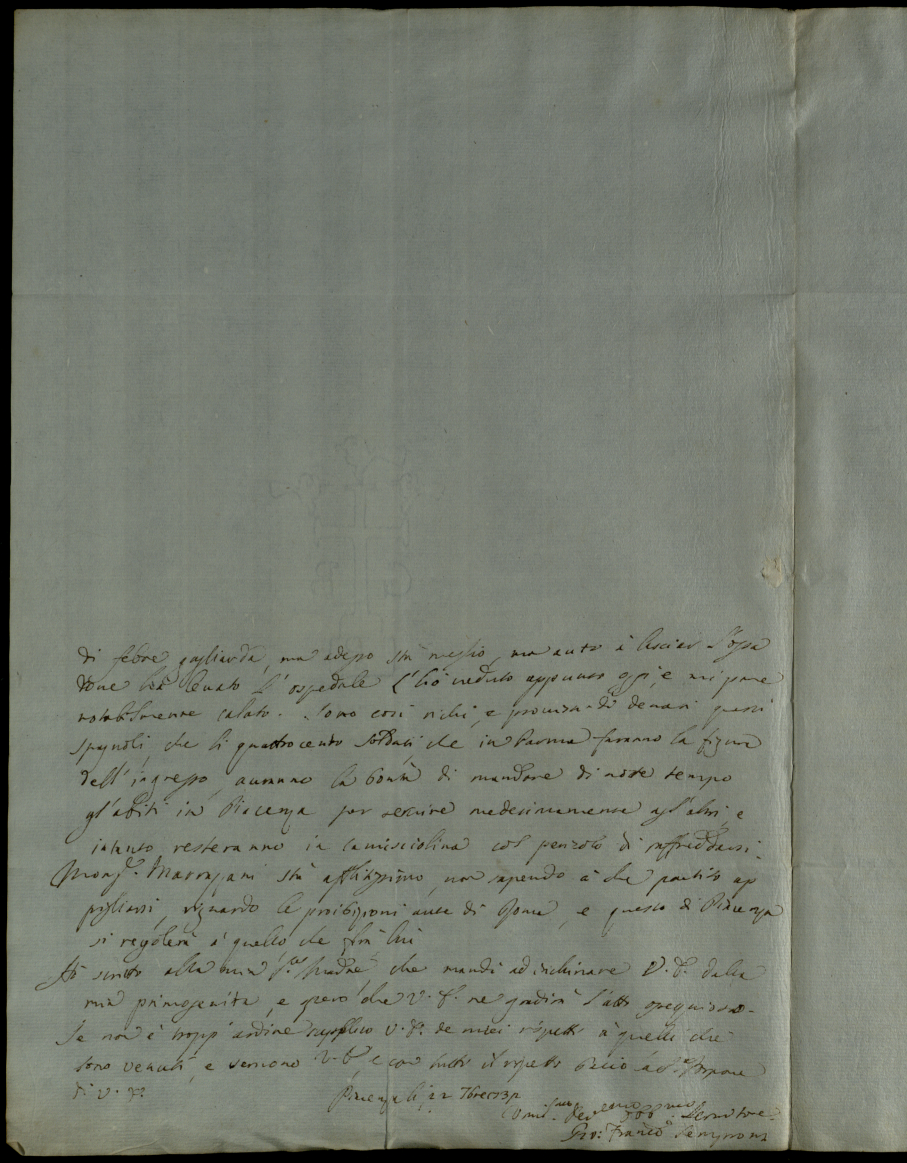 di febre gagliarda, ma adesso stà meglio, ma auto à lasciar l'ossa
doue hà leuato l'ospedale l'hò ueduto appunto oggi, e mi pare
notabilmente calato. Sono così richi, e prouisti di denari questi
Spagnoli, che li quattrocento soldati, che in Parma faranno la figura
dell'ingresso, auranno la bontà di mandare di notte tempo
gl'abiti in Piacenza per seruire medesimamente agl'altri, e
intanto resteranno in camisciolina col pericolo di raffreddarsi.
Mong.r Marazzani stà afflitissimo, non sapendo à che partito ap
pigliarsi, riguardo le proibizioni aute di Roma, e questo di Piacenza
si regolerà à quello che farà lui
Hò scritto alla mia Sig.ra Madre che mandi ad inchinare V. E. dalla
mia primogenita, e sperò che V. E. ne gradirà l'atto ossequioso.
Se non è tropp'ardire supplico V. E. de miei rispetti à quelli che
sono uenuti, e seruono V. E. e con tutto il rispetto
di V. E.
Piacenza li 22 7bre 1732
Umil.mo Deu.mo Obb.mo Seruitore
Gio: Franco